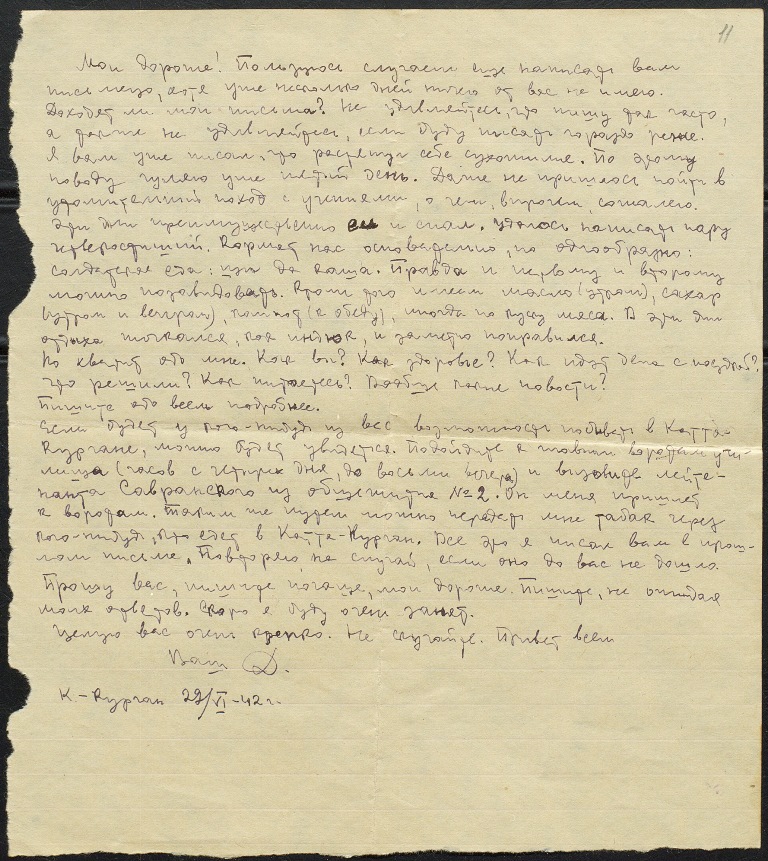 11
Мои дорогие! Пользуюсь случаем еще написать вам
письмецо, хотя уже несколько дней ничего от вас не имею.
Доходят ли мои письма? Не удивляйтесь, что пишу так часто,
а также не удивляйтесь, если буду писать гораздо реже.
Я вам уже писал, что растянул себе сухожилие. По этому
поводу гуляю уже пятый день. Даже не пришлось пойти в
удлинительный поход с учениями, о чем, впрочем, сожалею.
Эти дни преимущественно ел и спал. Удалось написать пару
четверостиший. Кормят нас основательно, но однообразно:
солдатская еда: щи да каша. Правда и первому и второму
можно позавидовать. Кроме того имеем масло (утром), сахар
(утром и вечером), компот (к обеду), иногда по куску мяса. В эти дни
отдыха точкался, как индюк, и заметно поправился.
Но хватит обо мне. Как вы? Как здоровье? Как идут дела с поездкой?
Что решили? Как питаетесь? Вообще какие новости?
Пишите обо всем подробнее.
Если будет у кого-нибудь из вас возможность побывать в Катта-
Кургане, можно будет увидеться. Подойдите к главным воротам учи-
лища (часов с четырех дня, до восьми вечера) и вызовите лейте-
нанта Савранского из общежития № 2. Он меня пришлет
к воротам. Таким же путем можно передать мне табак через
кого-нибудь, кто едет в Катта-Курган. Все это я писал вам в прош-
лом письме. Повторяю, на случай, если оно до вас не дошло.
Прошу вас, пишите почаще, мои дорогие. Пишите, не ожидая
моих ответов. Скоро я буду очень занят.
Целую вас очень крепко. Не скучайте. Привет всем
Ваш Д.
К-Курган 22/VI-42 г.